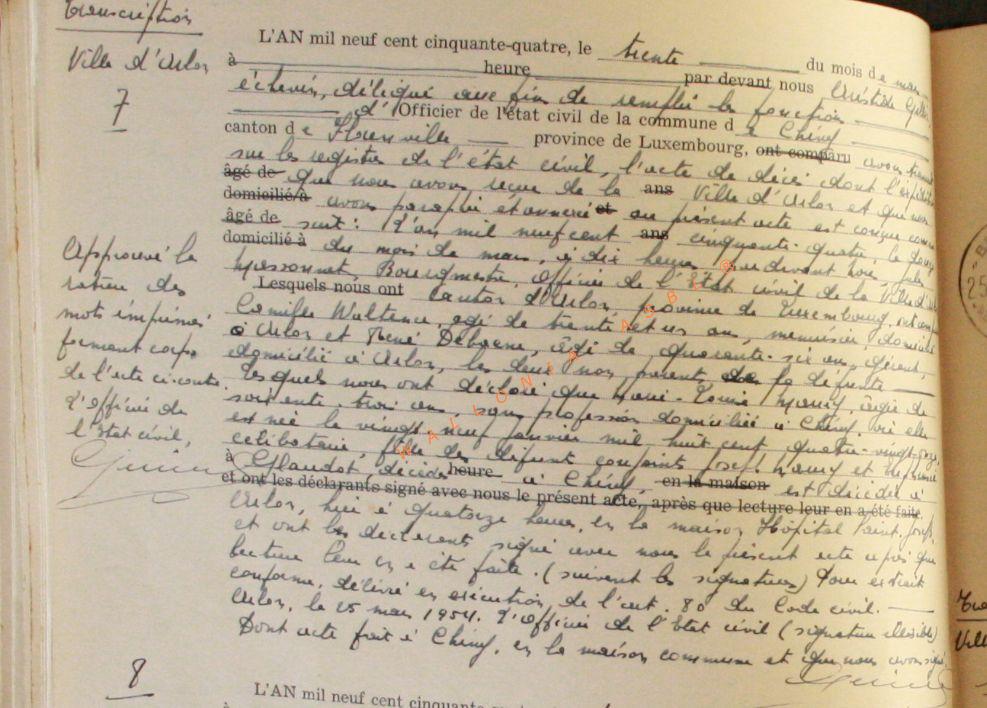 Transcription
Ville d'Arlon
7
L'AN mil neuf cent cinquante-quatre, le trente du mois de mars
à heure par devant nous Aristide
échevin, délégué aux fins de remplir les fonctions
d' Officier de l'état civil de la commune de Chiny
canton de Florenville province de Luxembourg, ont comparu avons transcrit
sur les registres de l'état civil, l'acte de décès dont l'expédition
âgé de que nous avons reçue de la ans Ville d'Arlon et que nous
domicilié à avons paraphé et annexé et au présent acte est conçue comme
âgé de suit : L'an mil neuf cent ans cinquante-quatre, le douze
domicilié à du mois de mars, à dix heures par devant nous, Jules
Massonnet, Bourgmestre, Officier de l'Etat civil de la Ville d'Arlon
Lesquels nous ont canton d'Arlon, province de Luxembourg, ont comparu
Camille Waltener, âgé de trente et un ans, menuisier, domicilié
à Arlon et René Debarne, âgé de quarante-six ans, gérant,
domicilié à Arlon, les deux non parents de la défunte
Lesquels nous ont déclaré que Marie- Louise, âgée de
soixante-trois ans, sans profession domiciliée à Chiny, où elle
est née le vingt-neuf janvier mil huit cent quatre-vingt-onze,
célibataire, fille des défunts conjoints Joseph et
à Glaudot, décédés heure à Chiny, en la maison est décédée à
et ont les déclarants signé avec nous le présent acte, après que lecture leur en a été faite.
Arlon, hier à quatorze heures, en la maison Hôpital Saint-Joseph,
et ont les déclarants signé avec nous le présent acte après que
lecture leur en a été faite. (suivent les signatures) Pour extrait
conforme, délivré en exécution de l'art. 80 du Code civil.
Arlon, le 25 mars 1954. L'Officier de l'Etat civil (signature illisible)
Dont acte fait à Chiny, en la maison commune et que nous avons signé.
Approuvé la
rature des
mots imprimés
formant corps
de l'acte ci-contre.
L'Officier de
l'Etat civil,
WALLONIE ASBL
8
L'AN mil neuf cent cinquante
à
25
Ville